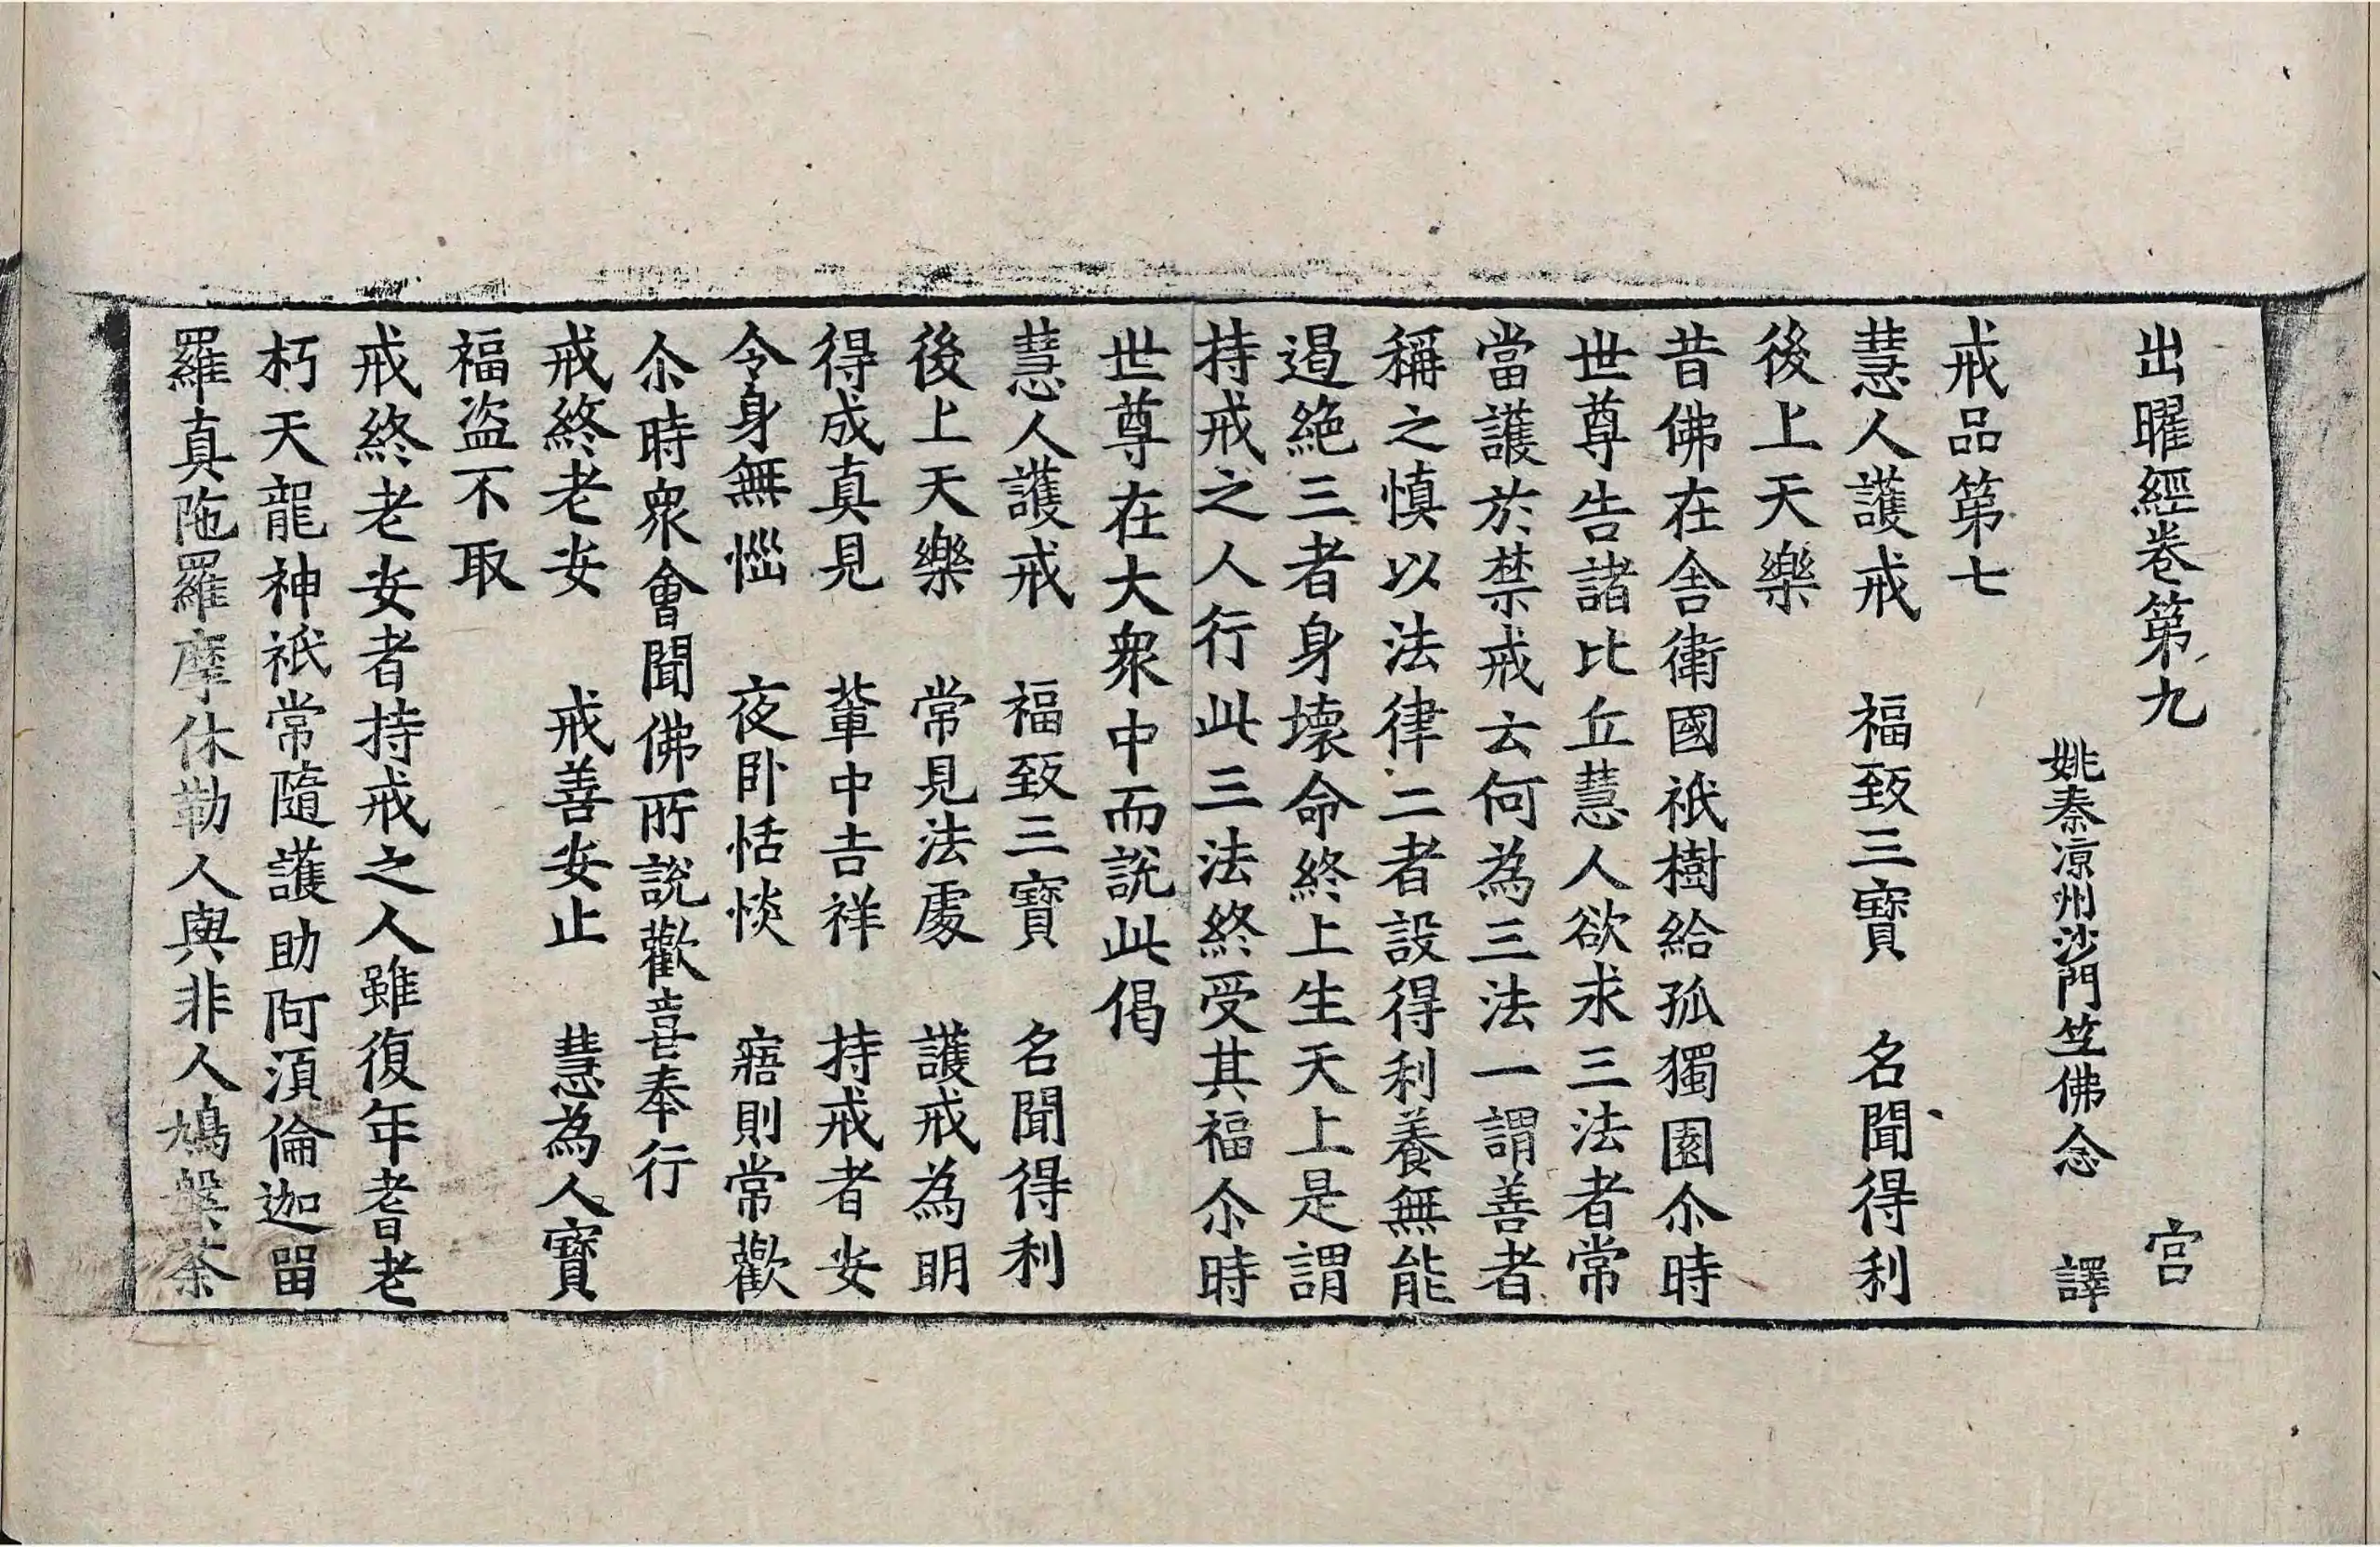 出曜經卷第九 宫
姚秦凉州沙門笁佛念 譯
戒品第七
慧人護戒 福致三寶 名聞得利
後上天樂
昔佛在舍衛國祇樹給孤獨園尒時
世尊告諸比丘慧人欲求三法者常
當護於禁戒云何為三法一謂善者
稱之慎以法律二者設得利養無能
遏絶三者身壞命終上生天上是謂
持戒之人行此三法終受其福尒時
世尊在大衆中而說此偈
慧人護戒 福致三寶 名聞得利
後上天樂 常見法處 護戒為明
得成真見 軰中吉祥 持戒者安
令身無惱 夜卧恬惔 寤則常歡
尒時衆會聞佛所說歡喜奉行
戒終老安 戒善安止 慧為人寶
福盗不取
戒終老安者持戒之人雖復年耆老
朽天龍神祇常隨護助阿湏倫迦留
羅真陁羅摩休勒人與非人鳩槃荼